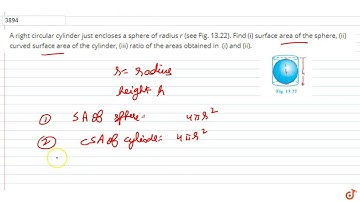 3894
A right circular cylinder just encloses a sphere of radius r (see Fig. 13.22). Find (i) surface area of the sphere, (ii)
curved surface area of the cylinder, (iii) ratio of the areas obtained in (i) and (ii).
Fig. 13.22
r = radius
height h
1 SA of sphere = 4πr²
2 CSA of cylinder = 4πr²